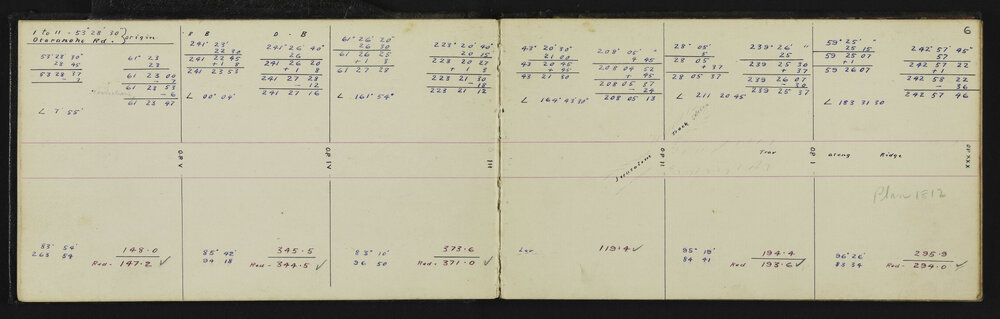 6
1 to 11 - 53° 28' 30" } origin
Otaramake Rd.
53° 28' 30"
28 45
53 28 37
∠ 7' 55"
61° 23'
23
61 23 00
61 23 53
- 6
61 23 47
S B
241° 23'
22 30
241 22 45
+ 1 8
241 23 53
∠ 00° 04'
O. B
241° 26' 40"
26
241 26 20
+ 1 8
241 27 28
241 27 16
61° 26' 20"
26 30
61 26 25
+ 1 3
61 27 28
∠ 161° 54"
223° 20' 40"
20 15
223 20 27
+ 1 3
223 21 30
- 18
223 21 12
43° 20' 30"
21 00
43 20 45
+ 45
43 21 30
∠ 164° 43' 30"
208° 05' "
4 45
208 04 52
+ 45
208 05 37
- 24
208 05 13
28° 05'
5
28 05
+ 37
28 05 37
∠ 211 20 45"
239° 26' "
25
239 25 30
+ 37
239 26 07
- 30
239 25 37
59° 25' "
25 15
59 25 07
+ 1
59 26 07
∠ 183 31 30
242° 57' 45"
57
242 57 22
+ 1
242 58 22
- 36
242 57 46
OP V
OP IV
III
Jerusalem
OP II
Track
Trav
OP I
along
Ridge
OP XXX
Plan 1812
83° 54'
263 54
148.0
Red - 147.2 ✓
85° 42'
94 18
345.5
Red - 344.5 ✓
83° 10'
96 50
373.6
Red. 371.0 ✓
Lev.
119.4 ✓
95° 19'
84 41
194.4
Red 193.6 ✓
96° 26'
83 34
295.9
Red - 294.0 ✓